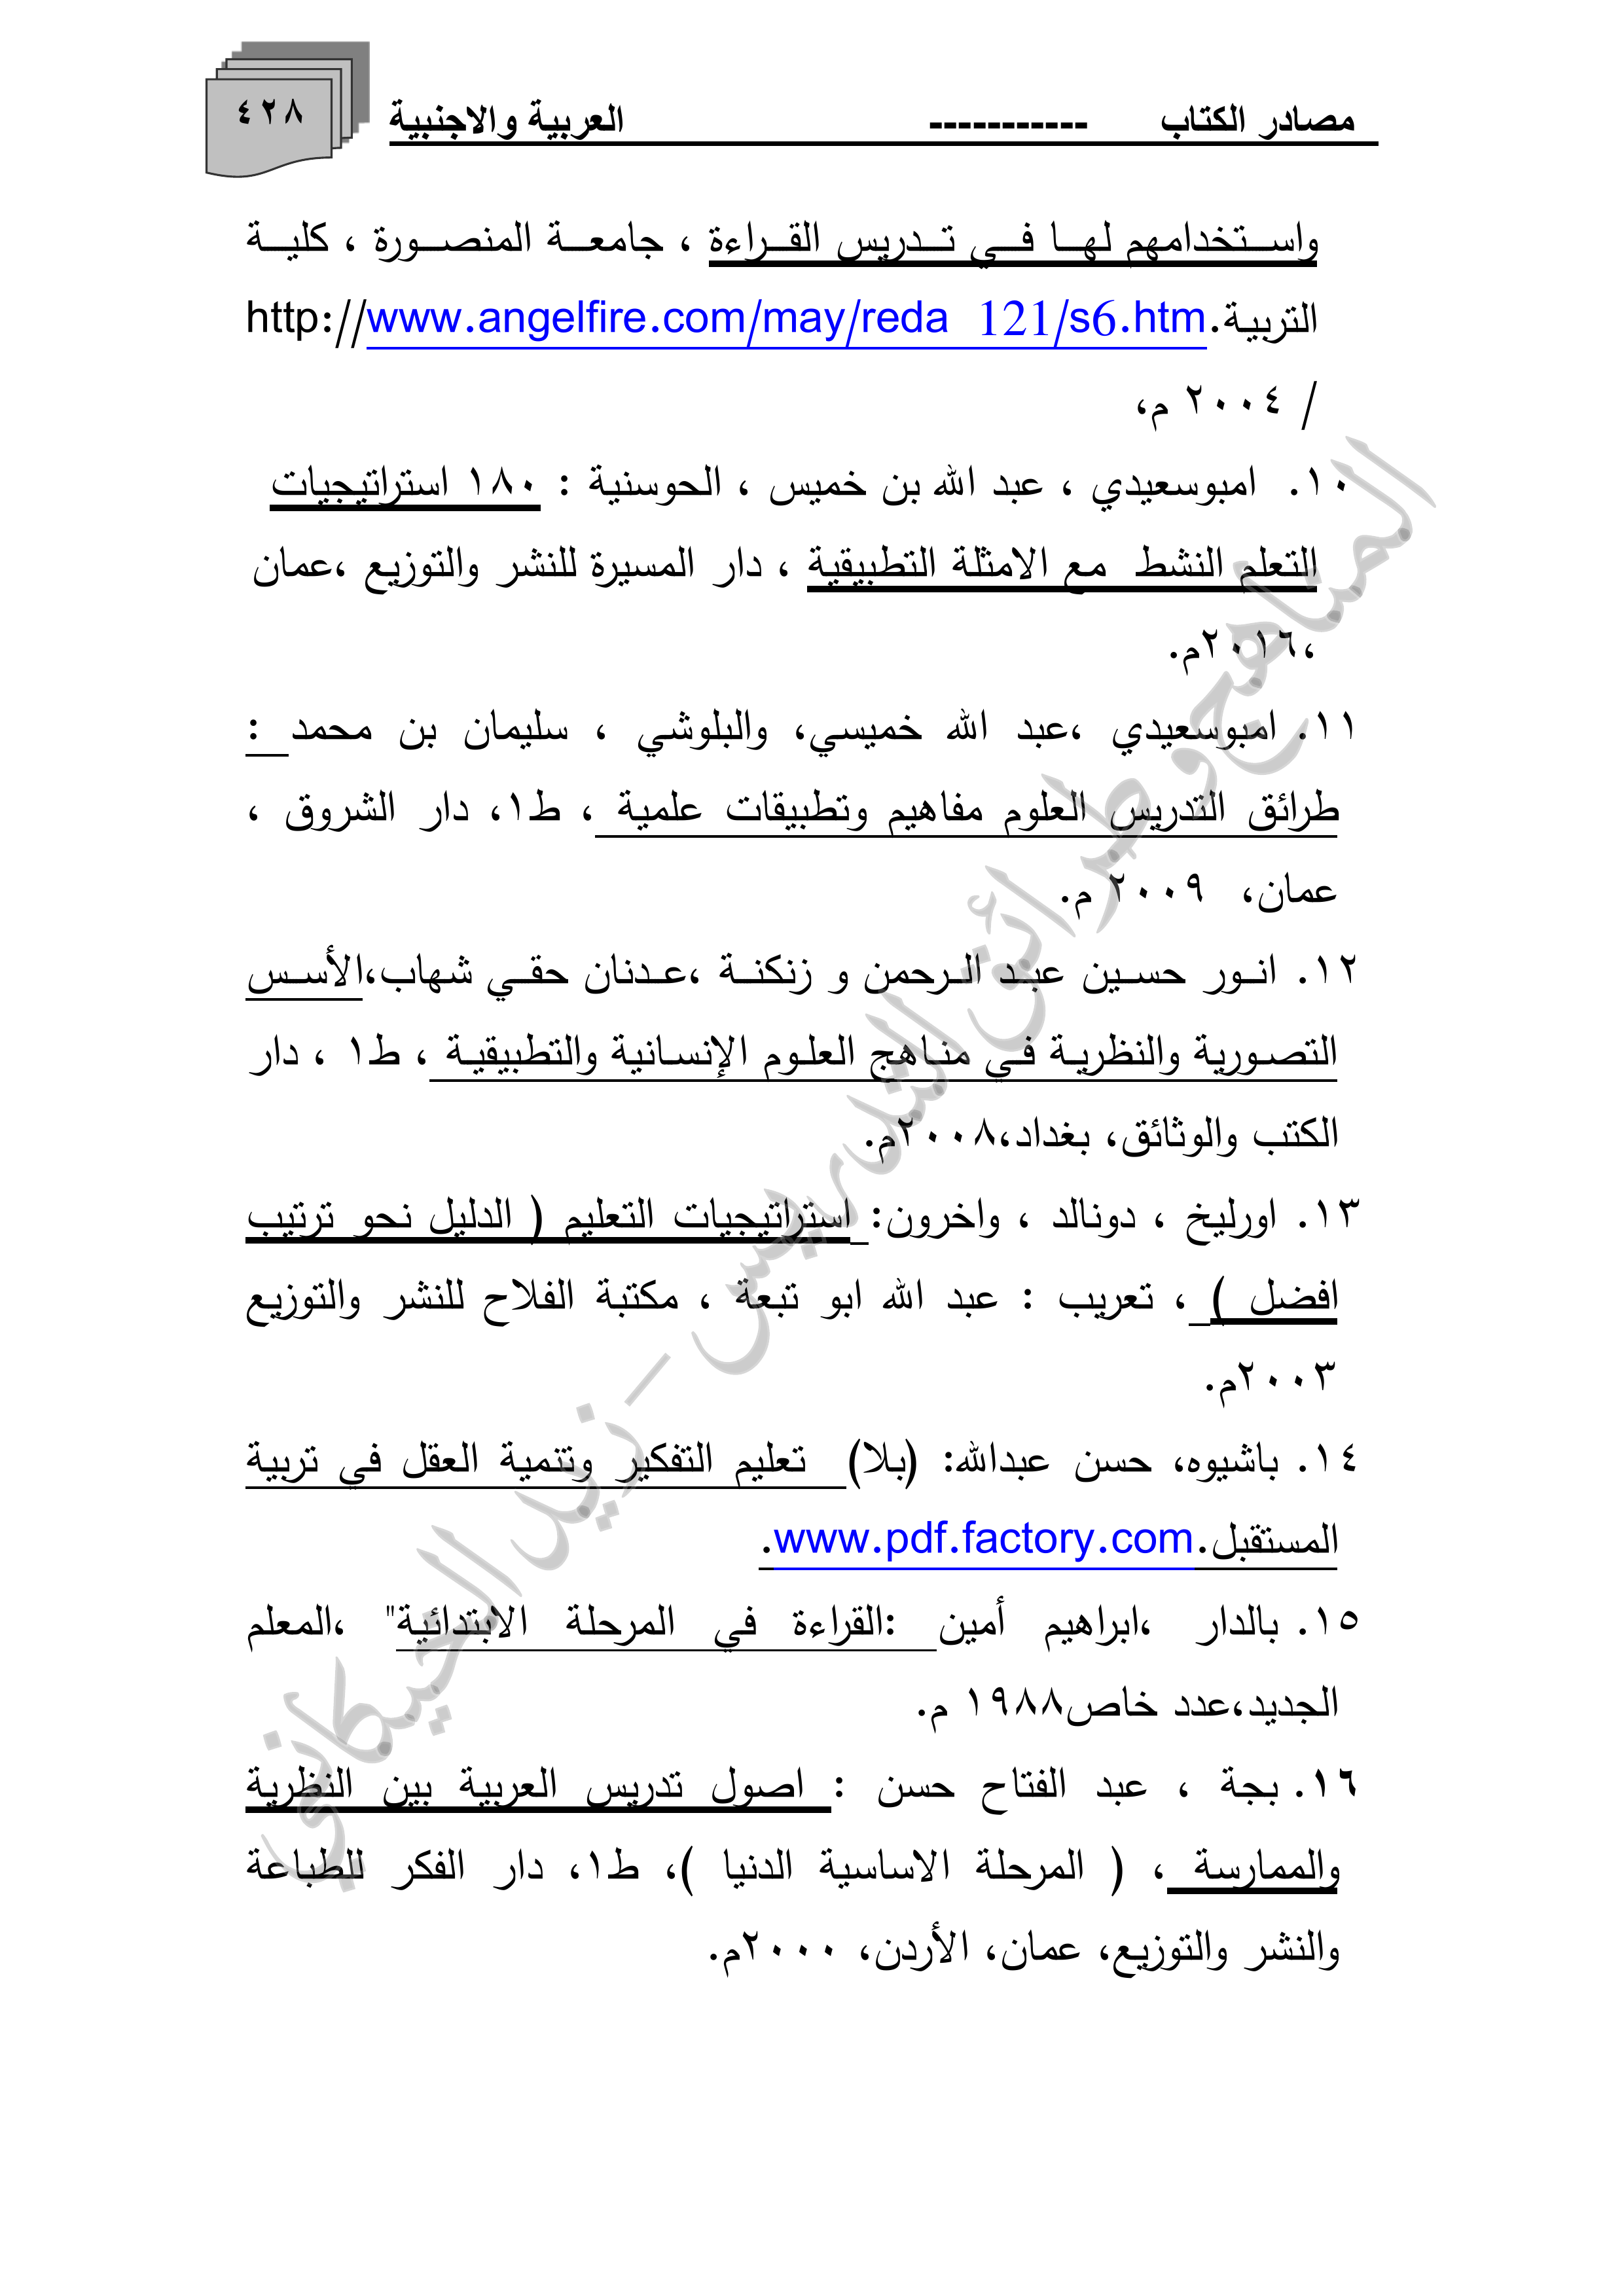 مصادر الكتاب ----------- العربية والاجنبية
٤٢٨
واستخدامهم لها في تدريس القراءة ، جامعة المنصورة ، كلية
التربية. http://www.angelfire.com/may/reda 121/s6.htm
/ ٢٠٠٤ م،
١٠. امبوسعيدي ، عبد الله بن خميس ، الحوسنية : ١٨٠ استراتيجيات
التعلم النشط مع الامثلة التطبيقية ، دار المسيرة للنشر والتوزيع ،عمان
،٢٠١٦م.
١١. امبوسعيدي ،عبد الله خميسي، والبلوشي ، سليمان بن محمد :
طرائق التدريس العلوم مفاهيم وتطبيقات علمية ، ط١، دار الشروق ،
عمان، ٢٠٠٩ م.
١٢. انور حسين عبد الرحمن و زنكنة ،عدنان حقي شهاب،الأسس
التصورية والنظرية في مناهج العلوم الإنسانية والتطبيقية ، ط١ ، دار
الكتب والوثائق، بغداد،٢٠٠٨م.
١٣. اورليخ ، دونالد ، واخرون: استراتيجيات التعليم ( الدليل نحو ترتيب
افضل ) ، تعريب : عبد الله ابو تبعة ، مكتبة الفلاح للنشر والتوزيع
٢٠٠٣م.
١٤. باشيوه، حسن عبدالله: (بلا) تعليم التفكير وتنمية العقل في تربية
المستقبل.www.pdf.factory.com.
١٥. بالدار ،ابراهيم أمين :القراءة في المرحلة الابتدائية" ،المعلم
الجديد،عدد خاص١٩٨٨ م.
١٦. بجة ، عبد الفتاح حسن : اصول تدريس العربية بين النظرية
والممارسة ، ( المرحلة الاساسية الدنيا )، ط١، دار الفكر للطباعة
والنشر والتوزيع، عمان، الأردن، ٢٠٠٠م.
المناهج وطرائق التدريس - زيد الخيكاني